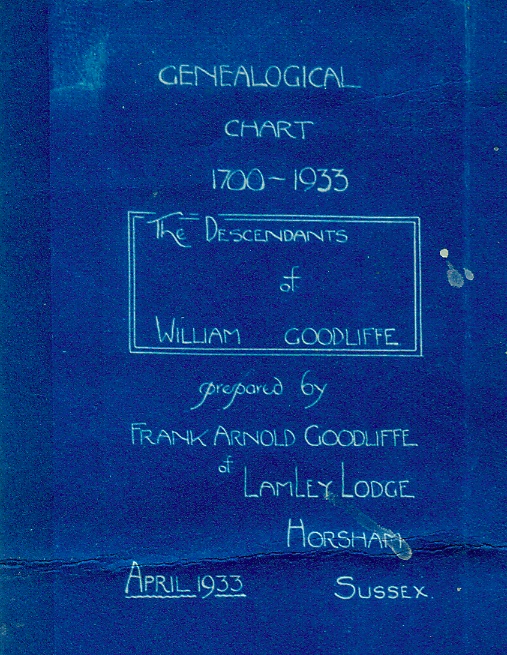 GENEALOGICAL
CHART
1700-1933
The DESCENDANTS
of
WILLIAM GOODLIFFE
prepared by
FRANK ARNOLD GOODLIFFE
of LAMLEY LODGE
HORSHAM
APRIL 1933 SUSSEX.